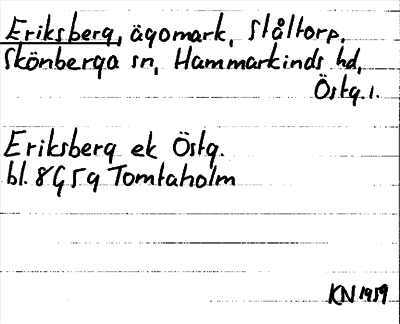 Eriksberg, ägomark, Ståltorp,
Skönberga sn, Hammarkinds hd,
Östg.l.
Eriksberg ek Östg.
bl. 8G5g Tomtaholm
KN 1959